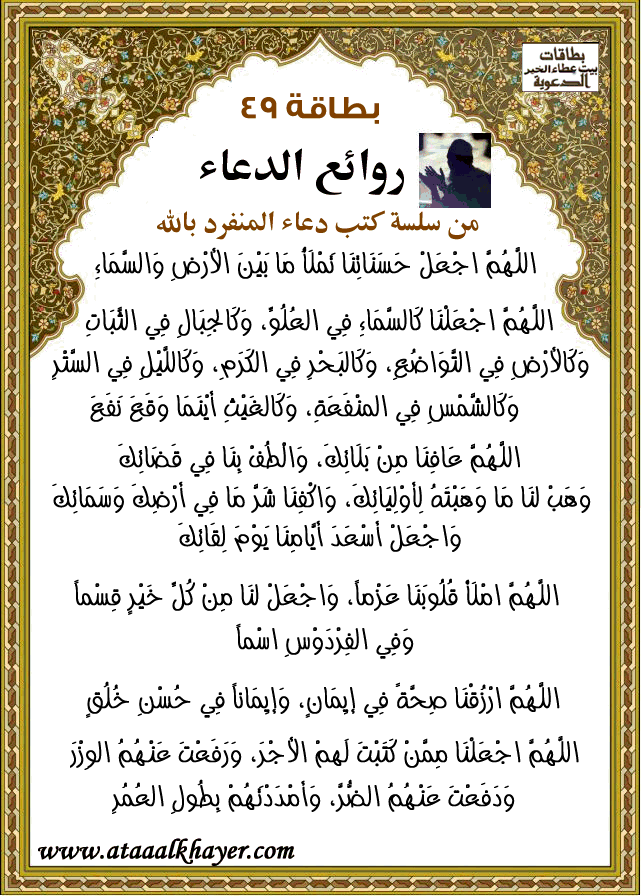 بطاقات
بيت عطاء الخير
الدعوية
بطاقة ٤٩
روائع الدعاء
من سلسة كتب دعاء المنفرد بالله
اللَّهُمَّ اجْعَلْ حَسَنَاتِنَا تَمْلَأُ مَا بَيْنَ الأَرْضِ وَالسَّمَاءِ
اللَّهُمَّ اجْعَلْنَا كَالسَّمَاءِ فِي العُلُوِّ، وَكَالجِبَالِ فِي الثَّبَاتِ
وَكَالأَرْضِ فِي التَّوَاضُعِ، وَكَالبَحْرِ فِي الكَرَمِ، وَكَاللَّيْلِ فِي السَّتْرِ
وَكَالشَّمْسِ فِي المنْفَعَةِ، وَكَالغَيْثِ أَيْنَمَا وَقَعَ نَفَعَ
اللَّهُمَّ عَافِنَا مِنْ بَلَائِكَ، وَالْطُفْ بِنَا فِي قَضَائِكَ
وَهَبْ لنَا مَا وَهَبْتَهُ لِأَوْلِيَائِكَ، وَاكْفِنَا شَرَّ مَا فِي أَرْضِكَ وَسَمَائِكَ
وَاجْعَلْ أَسْعَدَ أَيَّامِنَا يَوْمَ لِقَائِكَ
اللَّهُمَّ امْلَأْ قُلُوبَنَا عَزْماً، وَاجْعَلْ لنَا مِنْ كُلِّ خَيْرٍ قِسْماً
وَفِي الفِرْدَوْسِ اسْماً
اللَّهُمَّ ارْزُقْنَا صِحَّةً فِي إِيمَانٍ، وَإِيمَاناً فِي حُسْنِ خُلُقٍ
اللَّهُمَّ اجْعَلْنَا مِمَّنْ كَتَبْتَ لَهمْ الأَجْرَ، وَرَفَعْتَ عَنْهُمُ الوِزْرَ
وَدَفَعْتَ عَنْهُمُ الضُّرَّ، وَأَمْدَدْتَهُمْ بِطُولِ العُمُرِ
www.ataaalkhayer.com